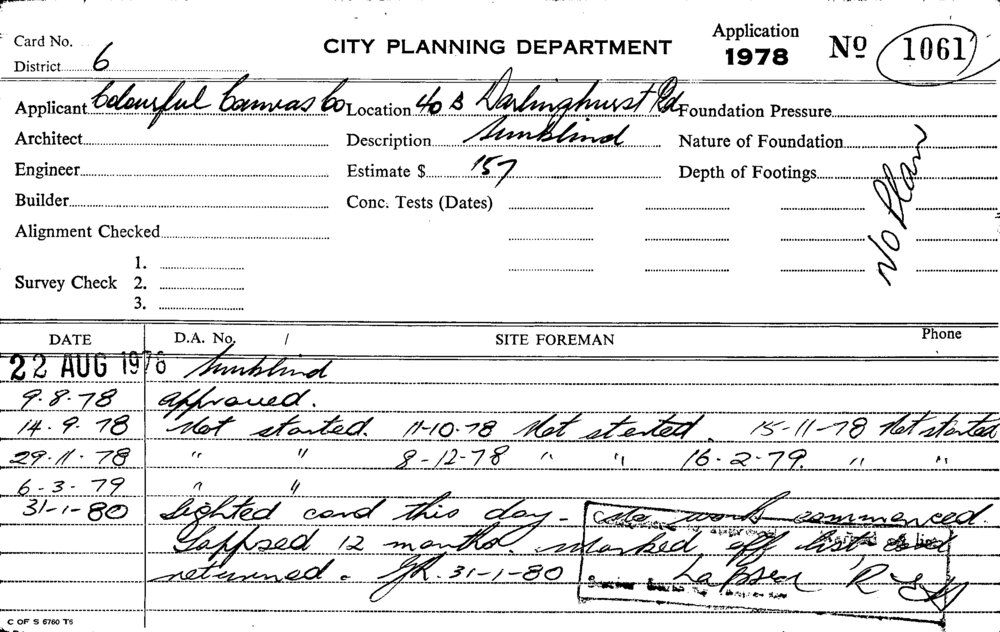 Card No.
District 6
CITY PLANNING DEPARTMENT
Application
1978
No 1061
Applicant Colourful Canvas Co Location 40 B Darlinghurst Rd Foundation Pressure
Architect Description Sunblind Nature of Foundation
Engineer Estimate $ 157 Depth of Footings
No Plan
Builder Conc. Tests (Dates)
Alignment Checked
1.
Survey Check 2.
3.
DATE D.A. No. / SITE FOREMAN Phone
22 AUG 1978 Sunblind
9.8.78 approved.
14.9.78 Not started. 11-10-78 Not started. 15-11-78 Not started
29.11.78 " " 8-12-78 " " 16-2-79. " "
6-3-79 " "
31-1-80 Sighted card this day - work commenced.
Lappsed 12 months. marked off list
returned. 31-1-80 Lapsed
C OF S 6760 T6